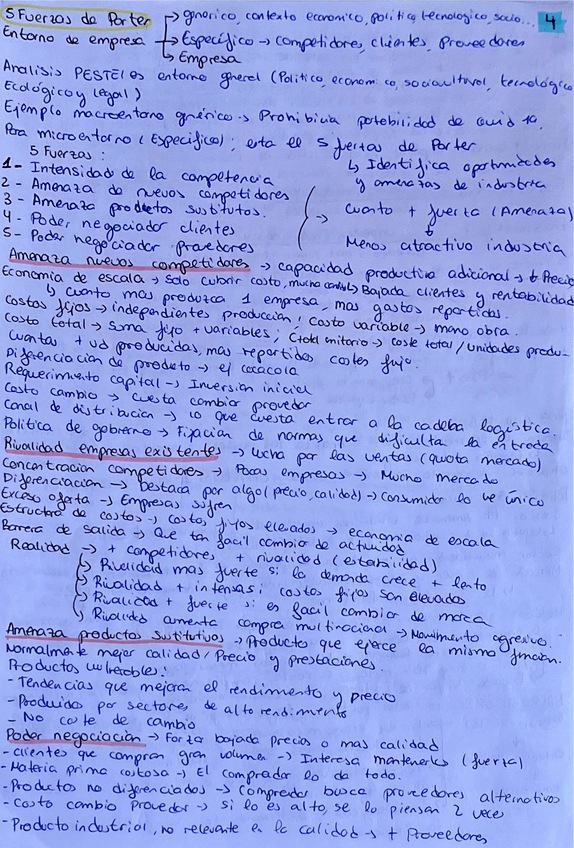 5 Fuerzas de Porter → generico, contexto economico, politico, tecnologico, socio... 4
Entorno de empresa → Específico → competidores, clientes, proveedores
↳ Empresa
Analisis PESTEL es entorno general (Politico, economico, sociocultural, tecnológico
Ecológico y legal)
Ejemplo macroentorno genérico → Prohibicia portebilidad de covid 19.
Para microentorno (Especifico): esta el 5 fuerzas de Porter
5 Fuerzas: ↳ Identifica oportunidades
1- Intensidad de la competencia y amenazas de industria
2- Amenaza de nuevos competidores
3- Amenaza productos sustitutos. → Cuanto + fuerza (Amenaza)
4- Poder, negociador clientes ↓
5- Poder negociador provedores Menos atractivo industria
Amenaza nuevos competidores → capacidad productiva adicional → Precio
Economia de escala → Solo cubrir costo, mucha ↳ Bajada clientes y rentabilidad
↳ cuanto mas produzca 1 empresa, mas gastos repartidos.
Costos fijos → independientes produccion / Costo variable → mano obra.
Costo total → Suma fijo + variables; Ctotal unitorio → coste total / unidades produ-
Cuantas + ud producidas, mas repartidos costes fijo.
Diferenciacion de produto → ej cocacola
Requerimiento capital → Inversion inicial
Costo cambio → cuesta cambiar provedor
Canal de distribucion → lo que cuesta entrar a la cadena logistica.
Politica de gobierno → Fijacion de normas que dificulta la entrada
Rivalidad empresas existentes → lucha por las ventas (quota mercado)
Concentracion competidores → Pocas empresas → Mucho mercado
Diferenciacion → Destaca por algo (precio, calidad) → Consumidor lo ve único
Exceso oferta → Empresas sufren
Estructura de costos → Costos fijos elevados → economia de escala
Barrera de salida → Que tan facil cambiar de actividad
Realidad → + competidores + rivalidad (estabilidad)
↳ Rivelidad mas fuerte si la demanda crece + lento
↳ Rivalidad + intensa si costos fijos son elevados
↳ Rivalidad + fuerte si es facil cambiar de marca
↳ Rivalidad aumenta compra multinacional → Movimiento agresivo.
Amenaza productos sustitutivos → Producto que ejerce la misma funcion.
Normalmente mejor calidad / Precio y prestaciones.
Productos vulnerables:
- Tendencias que mejoran el rendimiento y precio
- Producido por sectores de alto rendimiento
- No coste de cambio
Poder negociación → Forza bajada precios o mas calidad
- Clientes que compran gran volumen → Interesa mantenerles (fuerza)
- Materia prima costosa → El comprador lo da todo.
- Productos no diferenciados → comprador busca proveedores alternativos
- Costo cambio Provedor → si lo es alto, se lo piensan 2 veces
- Producto industrial, no relevante en la calidad → + Proveedores